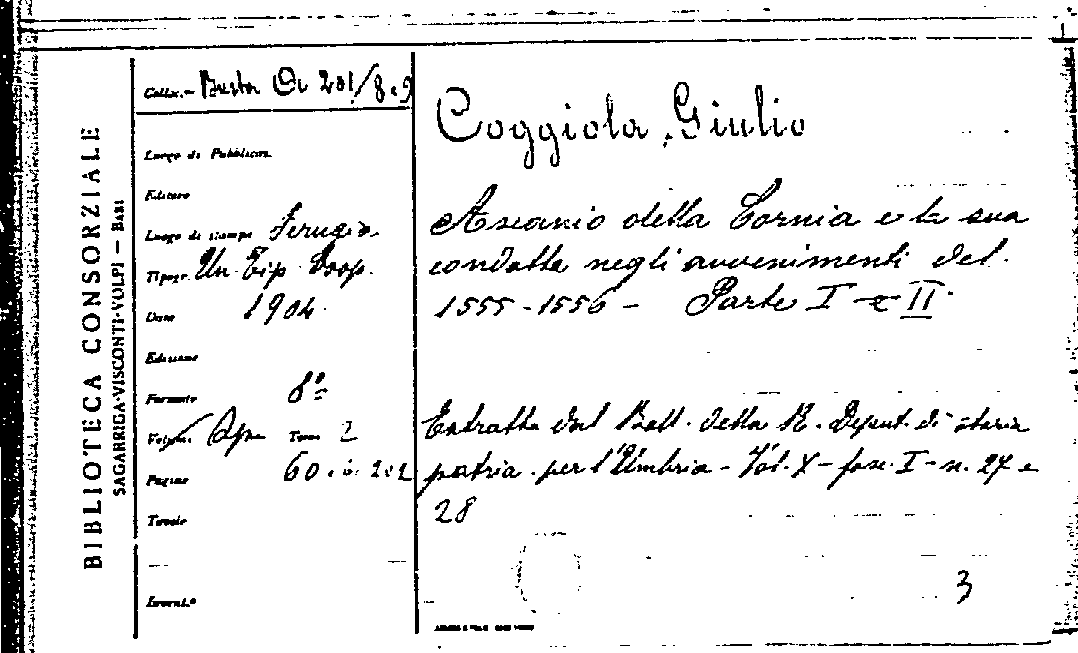 BIBLIOTECA CONSORZIALE
SAGARRIGA-VISCONTI-VOLPI — BARI
Colloc.— Busta Op 201/8.9
Luogo di Pubblicaz.
Editore
Luogo di stampa Perugia
Tipogr. Un. Tip. Coop.
Data 1904.
Edizione
Formato 8º
Volume Op. Tomi 2
Pagine 60
Tavole
Invent.º
Coggiola, Giulio
Ascanio della Cornia e la sua
condotta negli avvenimenti del
1555-1556 — Parte I e II.
Estratto dal Boll. della R. Deput. di storia
patria per l'Umbria — Vol. X — fasc. I — n. 27 e
28
3